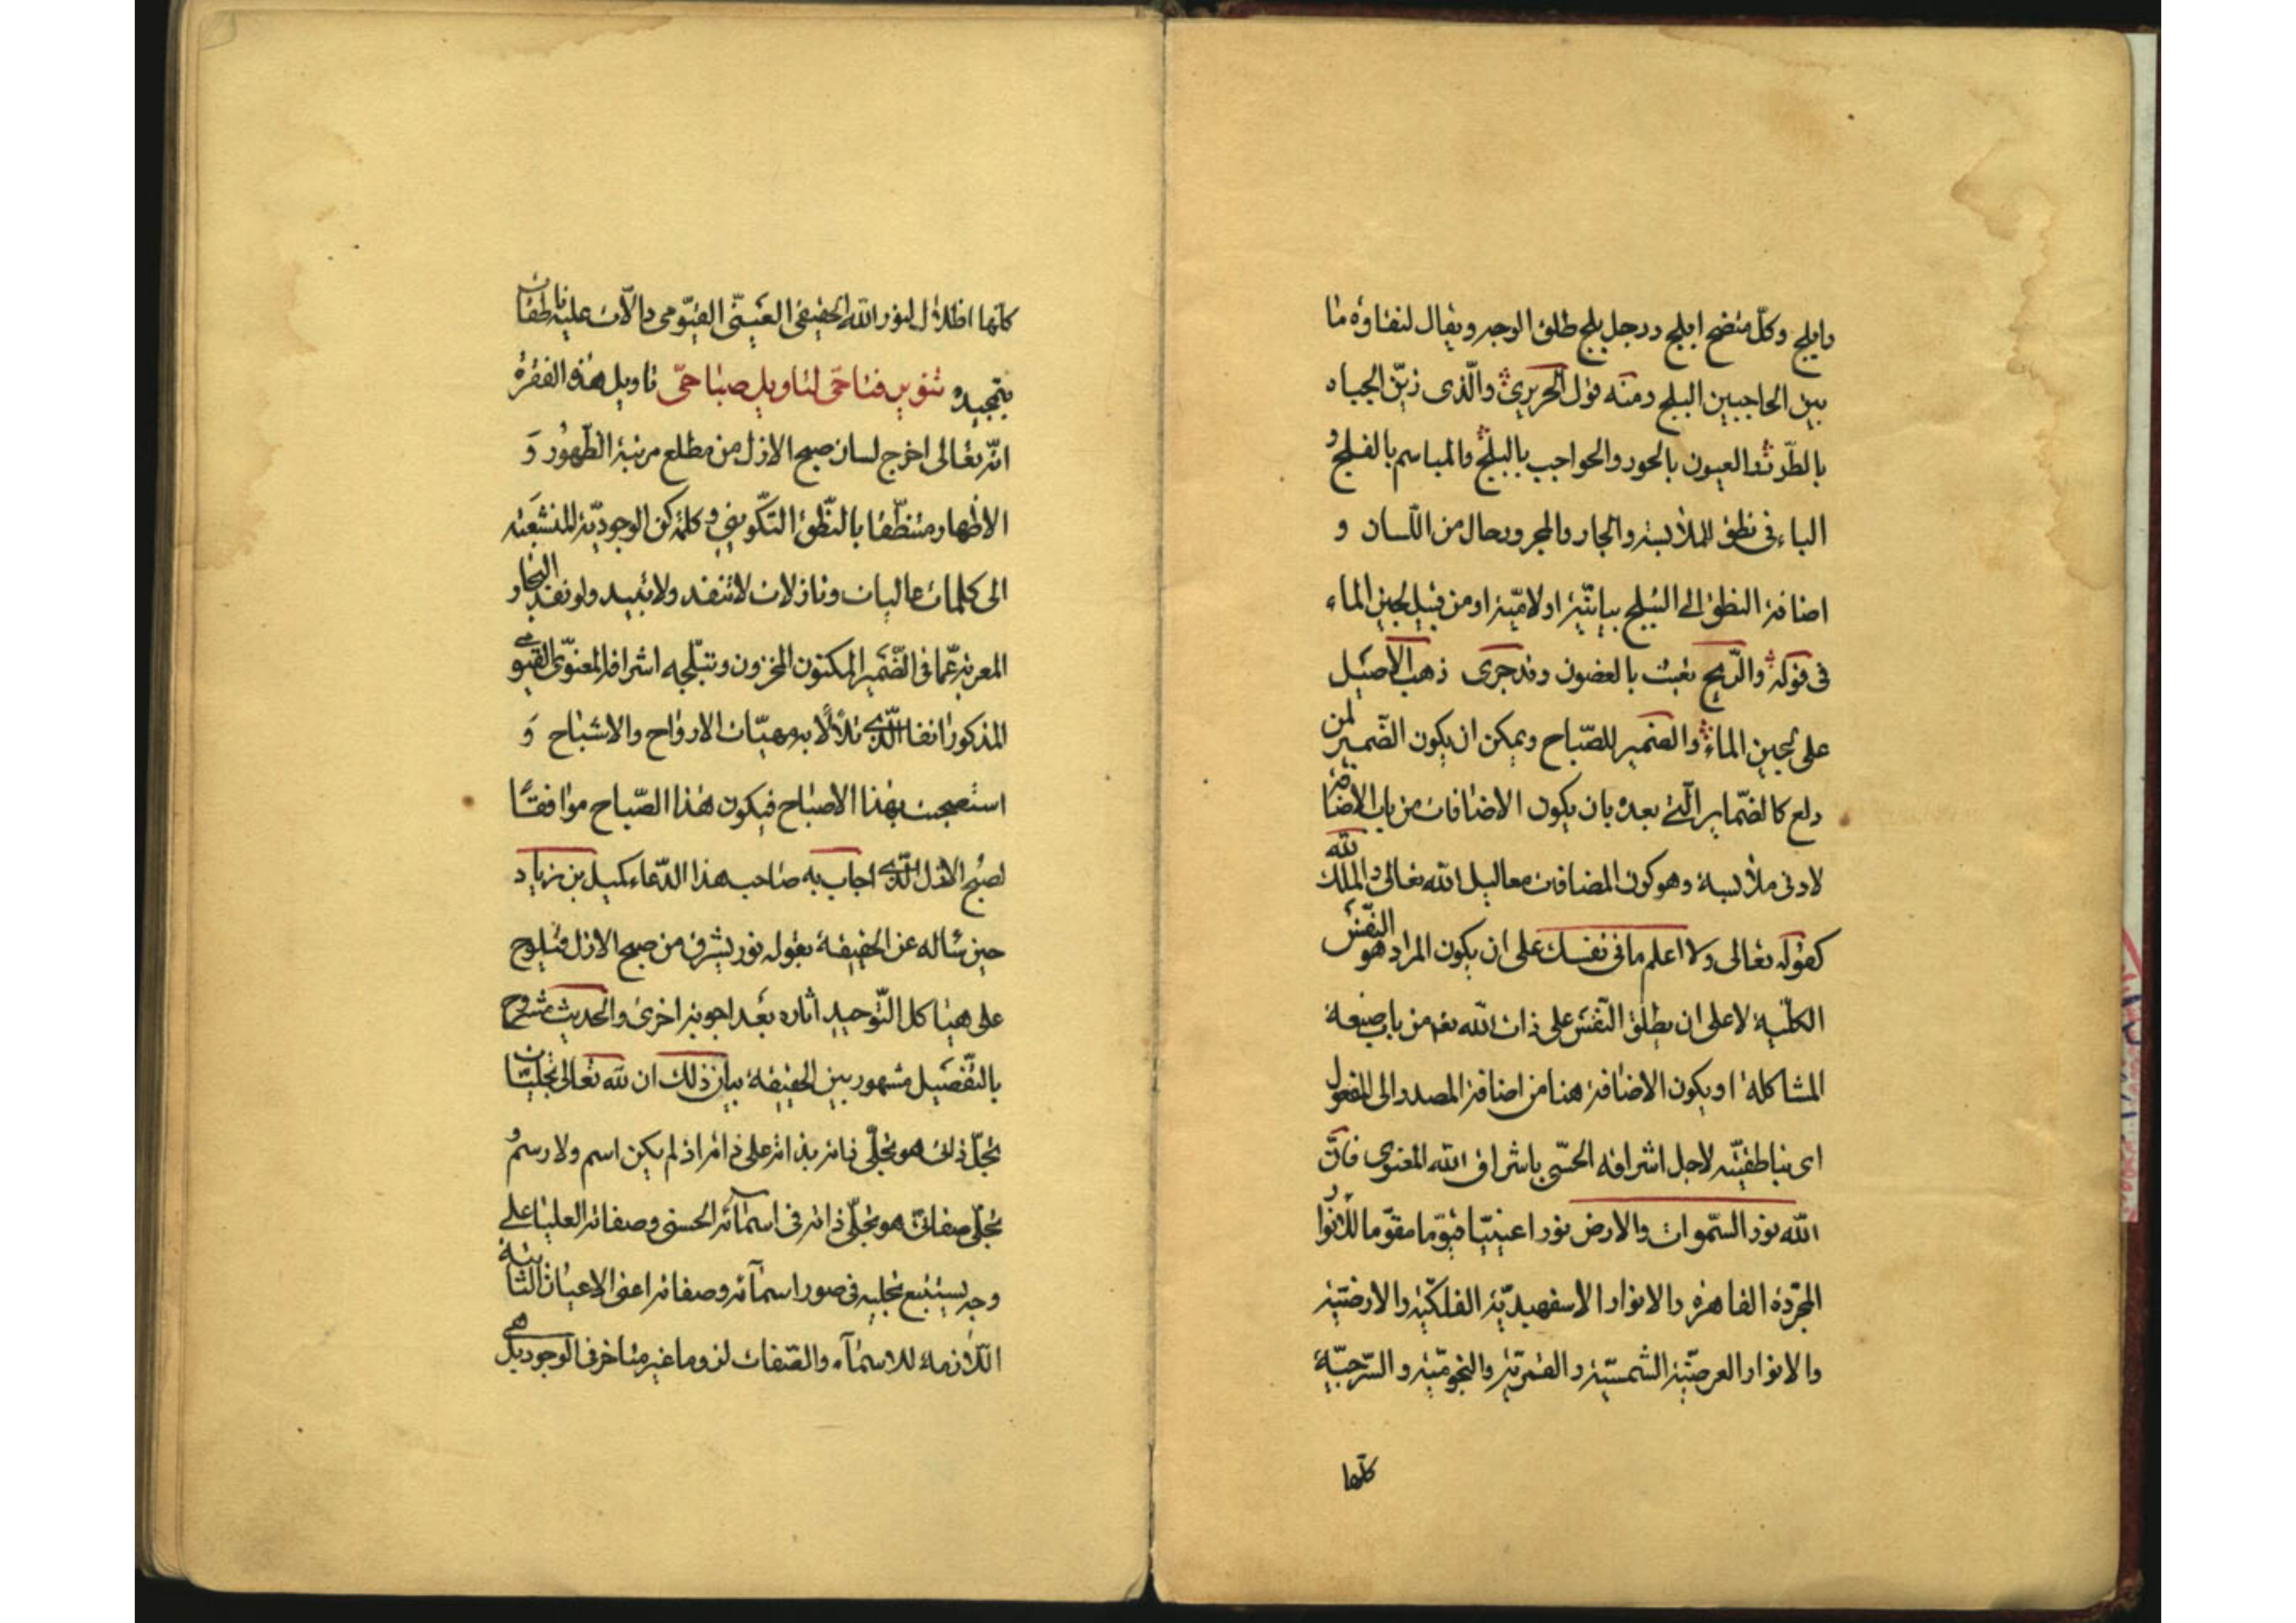 وابلج وكلّ متضح ابلج ورجل بلج طلق الوجه ويقال لنقاوة ما
بين الحاجبين البلج ومنه قول الحريرى والّذى زيّن الجباه
بالطّرر والعيون بالحور والحواجب بالبلج والمباسم بالفلج و
الباء فى نطق للملابسة والجار والمجرور حال من اللّسان و
اضافة النطق الى التبلج بيانيّة او لاميّة او من قبيل لجين الماء
فى قوله والرّيح تعبث بالغصون وقد جرى ذهب الاصيل
على لجين الماء والضمير للصّباح ويمكن ان يكون الضّمير لمن
دلع كالضّماير الّتى بعده بان يكون الاضافات من باب الاضافة
لادنى ملابسة وهو كون المضافات معاليل الله تعالى والملك لله
كقوله تعالى ولا اعلم ما فى نفسك على ان يكون المراد هو النّفس
الكلّية لا على ان يطلق النّفس على ذات الله تعـ من باب صنعة
المشاكلة او يكون الاضافة هنا من اضافة المصدر الى المفعول
اى بناطقيّته لاجل اشراقه الحسّى باشراق الله المعنوى فانّ
الله نور السّموات والارض نورا عينيّا قيّوما مقوّما للانوار
المجرّدة القاهرة والانوار الاسفهبديّة الفلكيّة والارضيّة
والانوار العرضيّة الشّمسيّة والقمريّة والنجوميّة والسّرجيّة
كلّها
كانّها اظلال لنور الله الحقيقى العينىّ القيّومى دالّات عليه ناطقات
بتمجيده تنوير فتاحىّ لتاويل صباحىّ تاويل هذه الفقرة
انّه تعالى اخرج لسان صبح الازل من مطلع مرتبة الظّهور و
الاظهار متنطّقا بالنّطق التكّوينى وكلمة كن الوجوديّة المنشعبة
الى كلمات عاليات ونازلات لا تنفد ولا تبيد ولو نفد البحار
المعربة عمّا فى الضّمير المكنون المخزون وتبلّجه اشراقه المعنوّى القيّومى
المذكور انفا الّذى تلألأ به مهيّات الارواح والاشباح و
استصبحت بهذا الاصباح فيكون هذا الصّباح موافقًا
لصبح الازل الّذى اجاب به صاحب هذا الدّعاء كميل بن زياد
حين سأله عن الحقيقة بقوله نور يشرق من صبح الازل فيلوح
على هياكل التّوحيد اثاره بعد اجوبة اخرى والحديث مشروح
بالتّفصيل مشهور بين الحقيقة بيان ذلك ان لله تعالى تجليّات
تجلّ ذاتى هو تجلّى ذاته بذاته على ذاته اذ لم يكن اسم ولا رسم و
تجلّى صفاتىّ هو تجلّى ذاته فى اسمائه الحسنى وصفاته العليا على
وجه يستتبع تجليه فى صور اسمآئه وصفاته اعنى الاعيان الثابتة
اللّازمة للاسمآء والصّفات لزوما غير متاخر فى الوجود بل هى